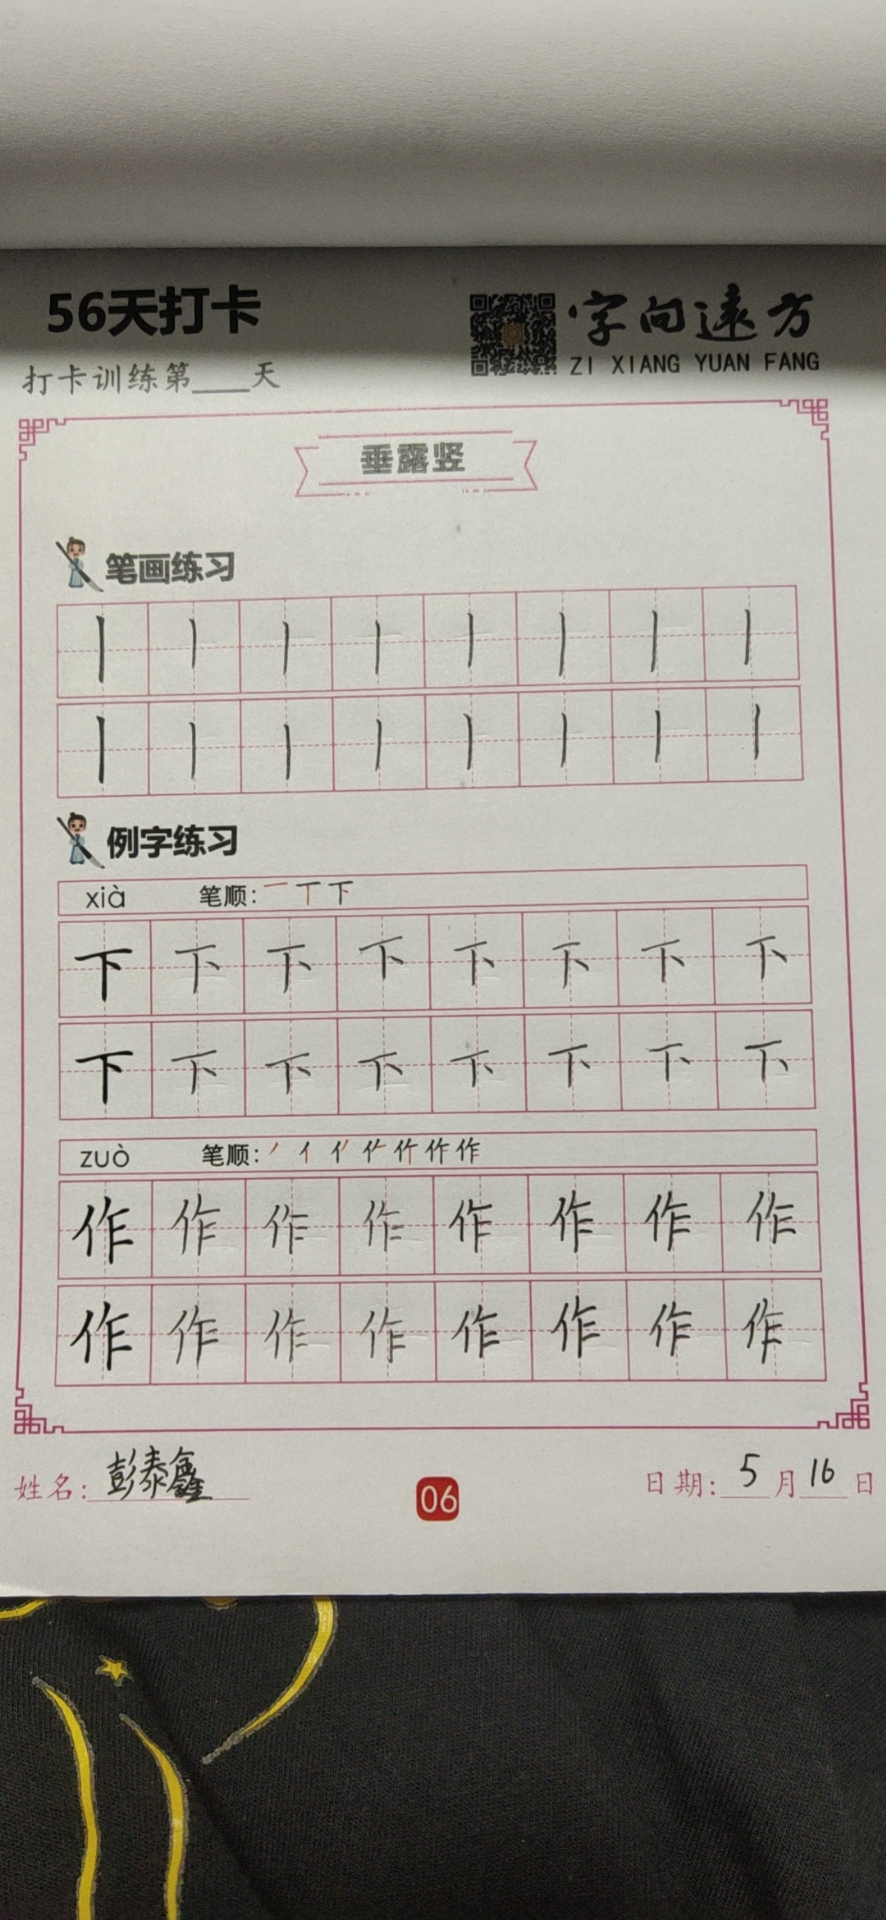 56天打卡
字向远方
ZI XIANG YUAN FANG
打卡训练第____天
垂露竖
笔画练习
丨丨丨丨丨丨丨丨
丨丨丨丨丨丨丨丨
例字练习
xià 笔顺: 一 丅 下
下下下下下下下下
下下下下下下下下
zuò 笔顺: 丿 亻 作
作作作作作作作作
作作作作作作作作
姓名: 彭泰鑫
06
日期: 5月16日